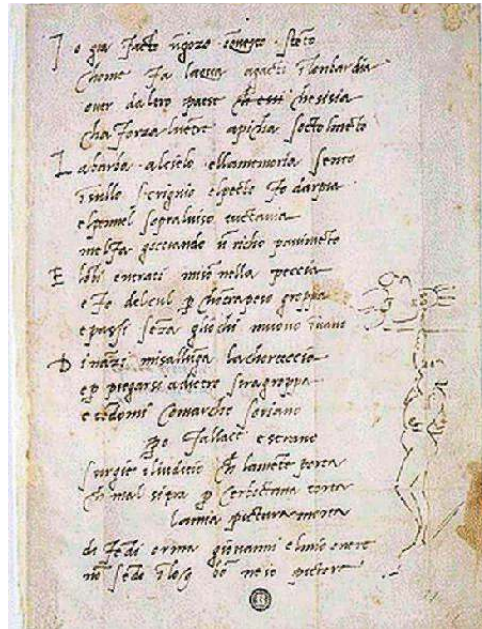 I o gia facto ngozo in questo stēto
chome fa lacqua agacti ī lonbardia
over daltro paese chesisia
cha forza luētre apicha socto lmēto
L a barba alcielo ellamemoria sento
ī sullo scrignio elpecto fo darpia
elpennel sopraluiso tuctauia
melfa gocciando ū richo pauimēto
E lobi entrati misō nella peccia
e fo delcul p chōtrapeso groppa
e passi sēza gliochi muouo īuano
D ināzi misallūga lachorteccia
e p piegarsi adietro siragroppa
e tēdomi comarcho soriano
po fallace e strano
surgie iliuditio ch lamēte porta
ch mal sitra p cerboctana torta
lamia pictura morta
di fēdi orma giouanni elmio onore
nō sēdo ī bō ne io pictore